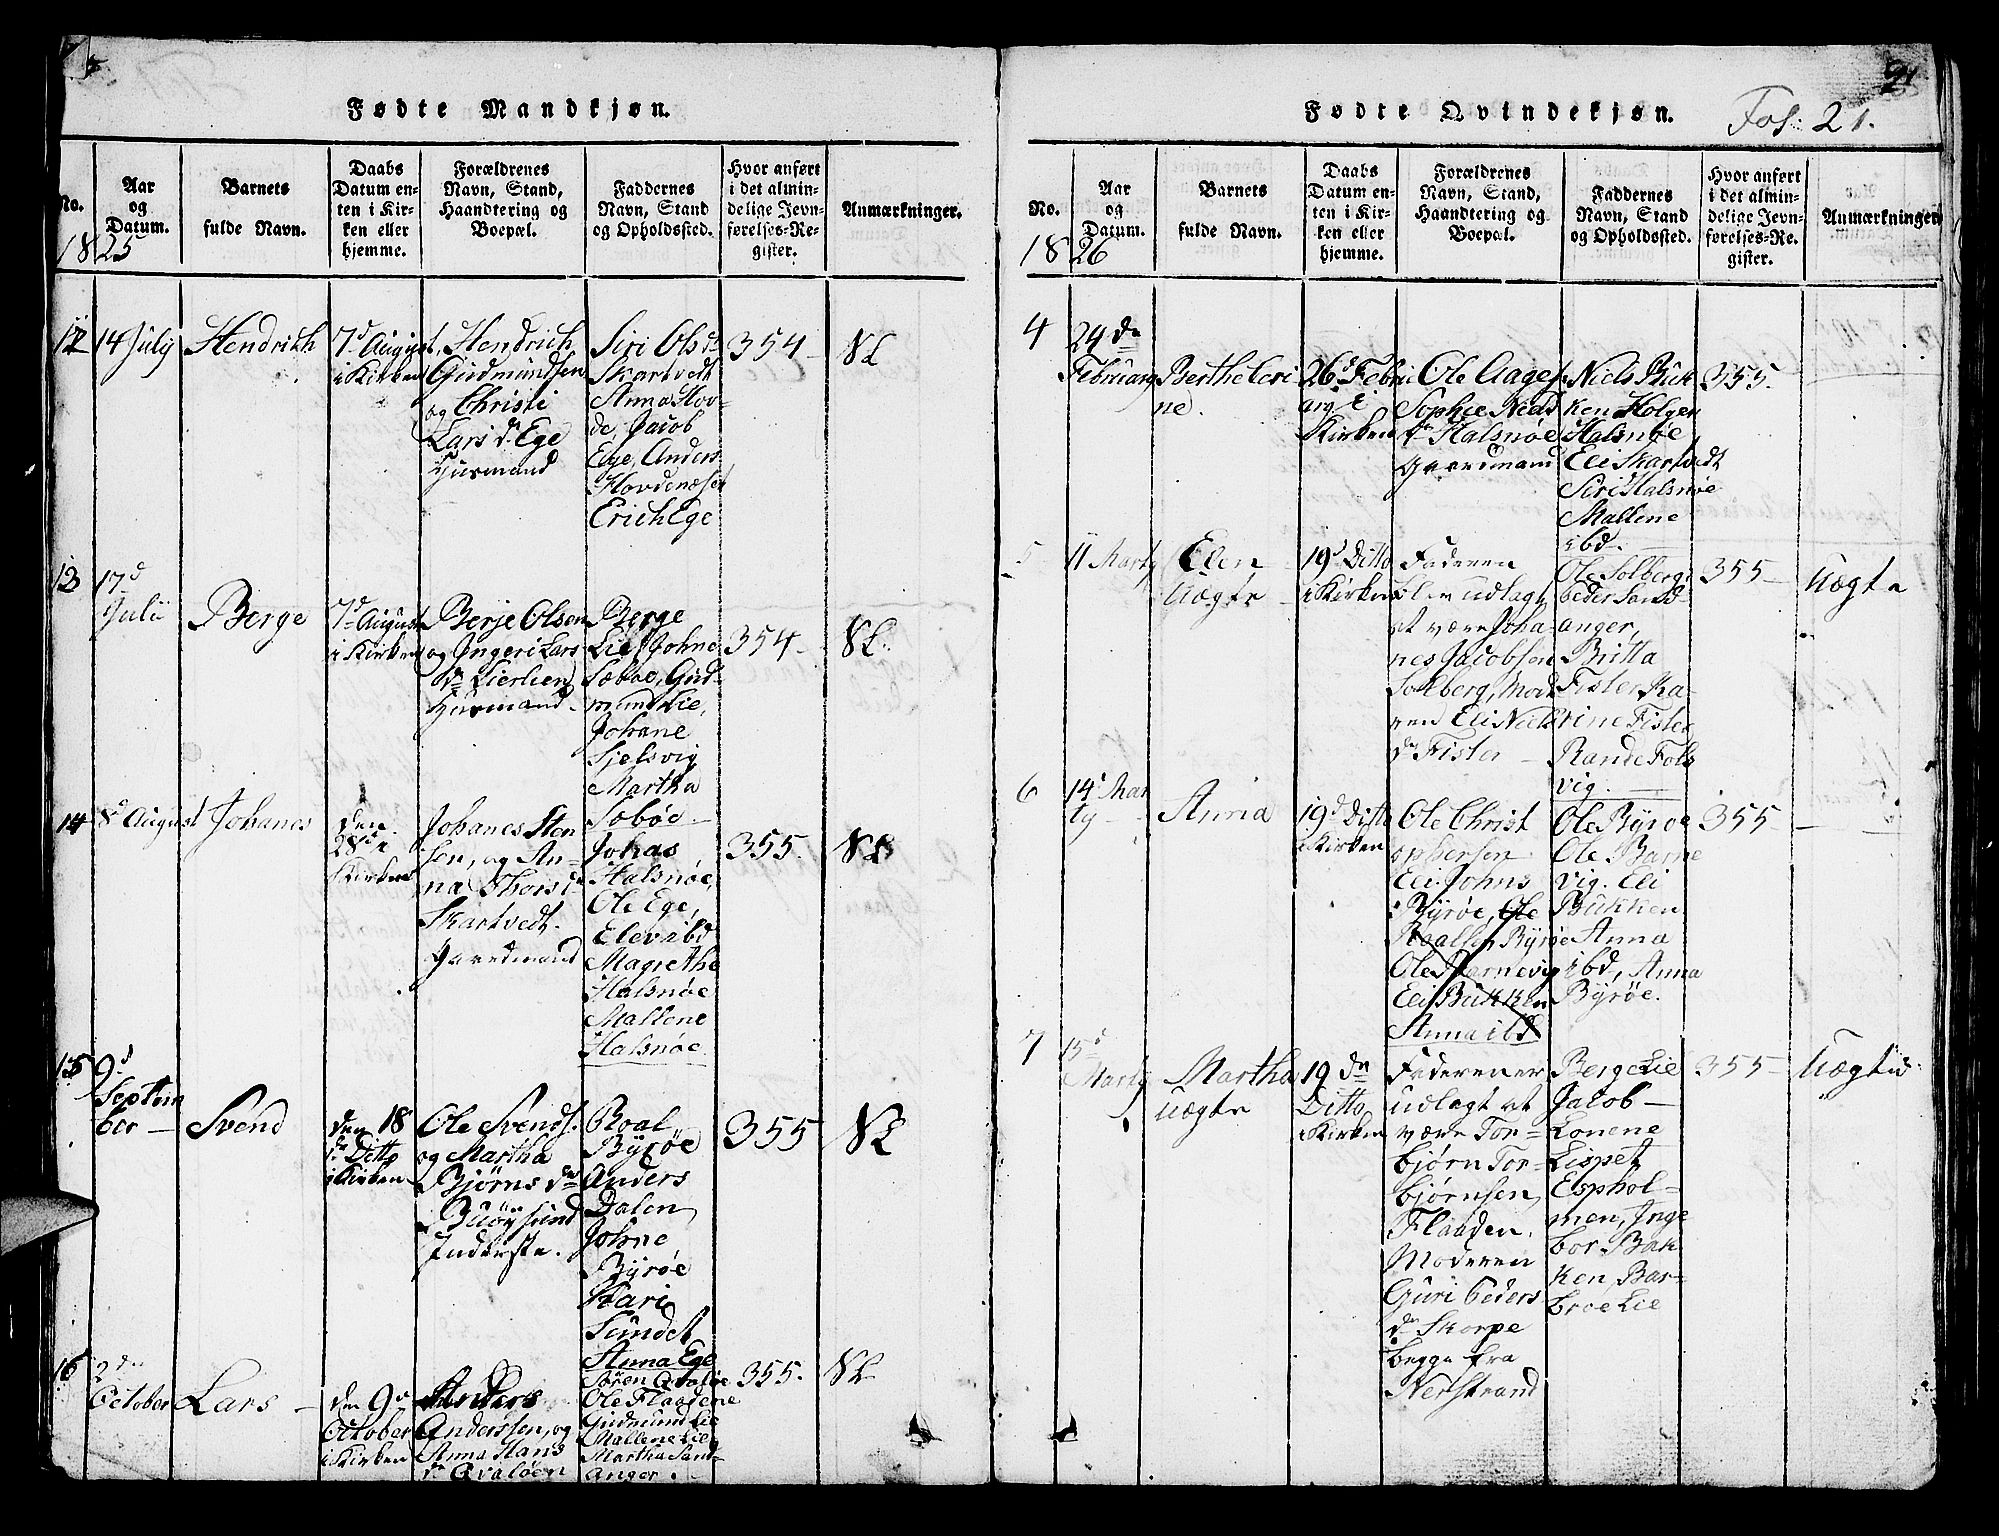 Fødte Mandkjøn.
No.
Aar
og
Datum.
Barnets
fulde Navn.
Daabs
Datum en-
ten i Kir-
ken eller
hjemme.
Forældrenes
Navn, Stand,
Haandtering og
Boepæl.
Faddernes
Navn, Stand
og Opholdssted.
Hvor anført
i det almin-
delige Jevn-
førelses-Re-
gister.
Anmærkninger.
1825
12
14 July
Hendrich
7d August
i Kirken
Hendrich
Gudmundsen
og Christi
Lars dr Ege
Huusmand
Siri Olsdr
Skartvedt
Anna Hov-
de, Jacob
Ege, Anders
Hovdenæset
Erich Ege
354
13
17d
Julii
Berge
7d August
i Kirken
Berje Olsen
og Ingeri Lars
dr Lierlien
Huusmand
Berge
Lie, Johne
Søbøe, Gud-
mund Lie,
Johane
Sjelsvig
Martha
Søbøe
354
14
8d August
Johanes
den
28de
Kirken
Johanes Sten
sen, og An-
na Thorsdr
Skartvedt.
Gaardmand
Johas
Halsnøe,
Ole Ege,
Elev ibd
Magrethe
Halsnøe
Mallene
Halsnøe
355
15
9d
Septem
ber
Svend
den 18
d Ditto
i Kirken
Ole Svends.
og Martha
Bjørns dr
Buøysund
Inderste.
Roal
Byrøe
Anders
Dalen
Johne
Byrøe
Kari
Sundet
Anna Ege
355
16
2den
October
Lars
den 9d
October
i Kirken
Anders
Anderssen, og
Anna Hans
dr Qvaløen
Søren Qvaløe
Ole Flaadene
Gudmund Lie
Mallene Lie
Martha Sand-
anger.
355.
Fødte Qvindekjøn.
Fol: 21.
No.
Aar
og
Datum.
Barnets
fulde Navn.
Daabs
Datum en-
ten i Kir-
ken eller
hjemme.
Forældrenes
Navn, Stand,
Haandtering og
Boepæl.
Faddernes
Navn, Stand
og Opholdssted.
Hvor anført
i det almin-
delige Jevn-
førelses-Re-
gister.
Anmærkninger
1826
4
24de
Februarg
Berthe Seri
ne.
26d Febru
arg i
Kirken
Ole Aages.
Sophie Niels
dr Halsnøe
Gaardmand
Niels Buk
ken Holger
Halsnøe
Eli Skartvedt
Siri Halsnøe
Mallene
ibd.
355.
5
11 Marty
Elen
Uægte
19d Ditto
i Kirken
Faderen
blev udlagt
at være Joha
nes Jacobsen
Solberg, Mod
eren Eli Niels
dr Fister
Ole Solberg
Peder Sand-
anger,
Britta
Fister, Ka-
rine Fister
Rande Fols
vig.
355
Uægte
6
14d Mar
ty
Anna
19d Ditto
i Kirken
Ole Christ
ophersen
Eli Johns
i Byrøe, Ole
Roalsen Byrøe
Ole Barnevig
Eli Bukken
Anna ibd
Ole Byrøe
Ole Barne
vig. Eli
Bukken
Anna
ibd, Anna
Byrøe.
355
7
15d
Marty
Martha
Uægte
19de
Ditto
i Kirken
Faderen er
udlagt at
være Tor-
bjørn Tor-
bjørnsen
Flaaden.
Moderen
Guri Peders
dr Skorpe
begge fra
Nerstrand
Berge Lie
Jacob
Lonene
Lispet
Esphol-
men, Inge
bor Bak
ken, Bar-
broe Lie
355
Uægte